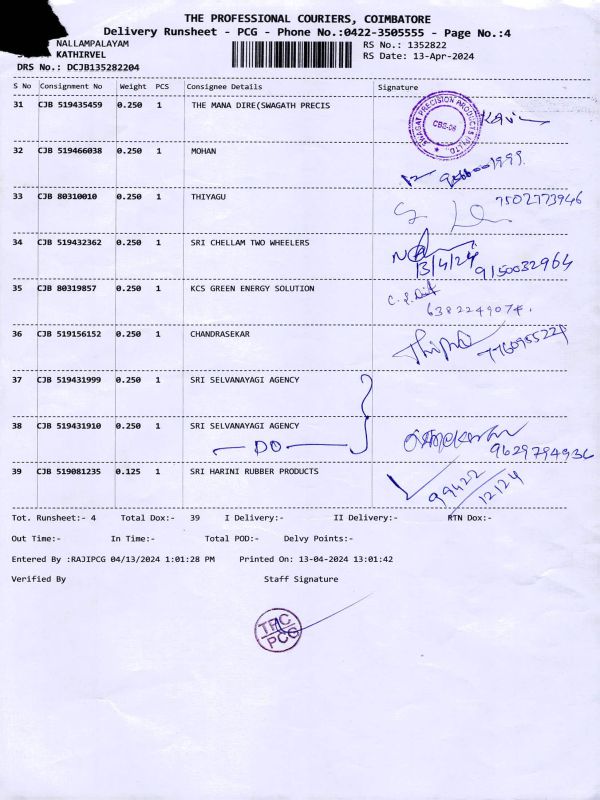 THE PROFESSIONAL COURIERS, COIMBATORE
Delivery Runsheet - PCG - Phone No.:0422-3505555 - Page No.:4
NALLAMPALAYAM
RS No.: 1352822
KATHIRVEL
RS Date: 13-Apr-2024
DRS No.: DCJB135282204
S No Consignment No Weight PCS Consignee Details Signature
31 CJB 519435459 0.250 1 THE MANA DIRE(SWAGATH PRECIS
CBE-06
32 CJB 519466038 0.250 1 MOHAN
33 CJB 80310010 0.250 1 THIYAGU
7502773946
34 CJB 519432362 0.250 1 SRI CHELLAM TWO WHEELERS
13/4/24 9150032964
35 CJB 80319857 0.250 1 KCS GREEN ENERGY SOLUTION
6382249074.
36 CJB 519156152 0.250 1 CHANDRASEKAR
37 CJB 519431999 0.250 1 SRI SELVANAYAGI AGENCY
38 CJB 519431910 0.250 1 SRI SELVANAYAGI AGENCY
DO
9629794936
39 CJB 519081235 0.125 1 SRI HARINI RUBBER PRODUCTS
99422
12124
Tot. Runsheet:- 4 Total Dox:- 39 I Delivery:- II Delivery:- RTN Dox:-
Out Time:- In Time:- Total POD:- Delvy Points:-
Entered By :RAJIPCG 04/13/2024 1:01:28 PM Printed On: 13-04-2024 13:01:42
Verified By Staff Signature
TPC
PCG